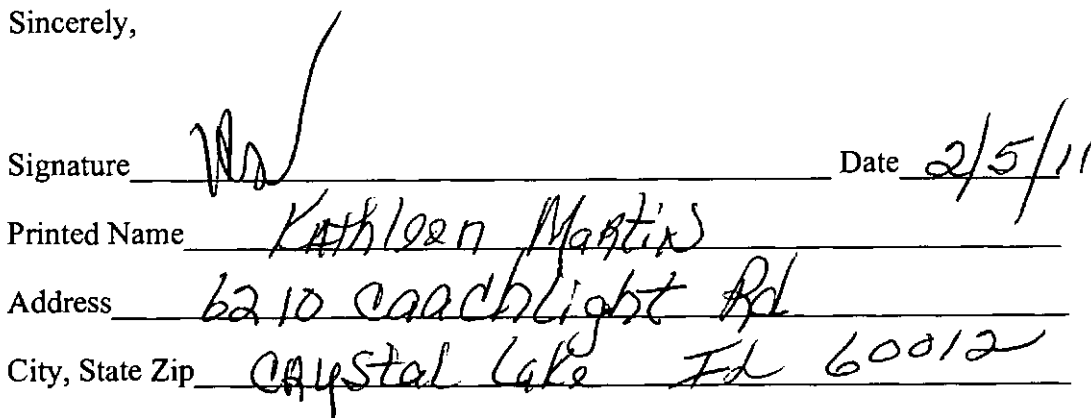 Sincerely,
Signature Date 2/5/11
Printed Name Kathleen Martin
Address 6210 Coachlight Rd
City, State Zip Crystal Lake IL 60012